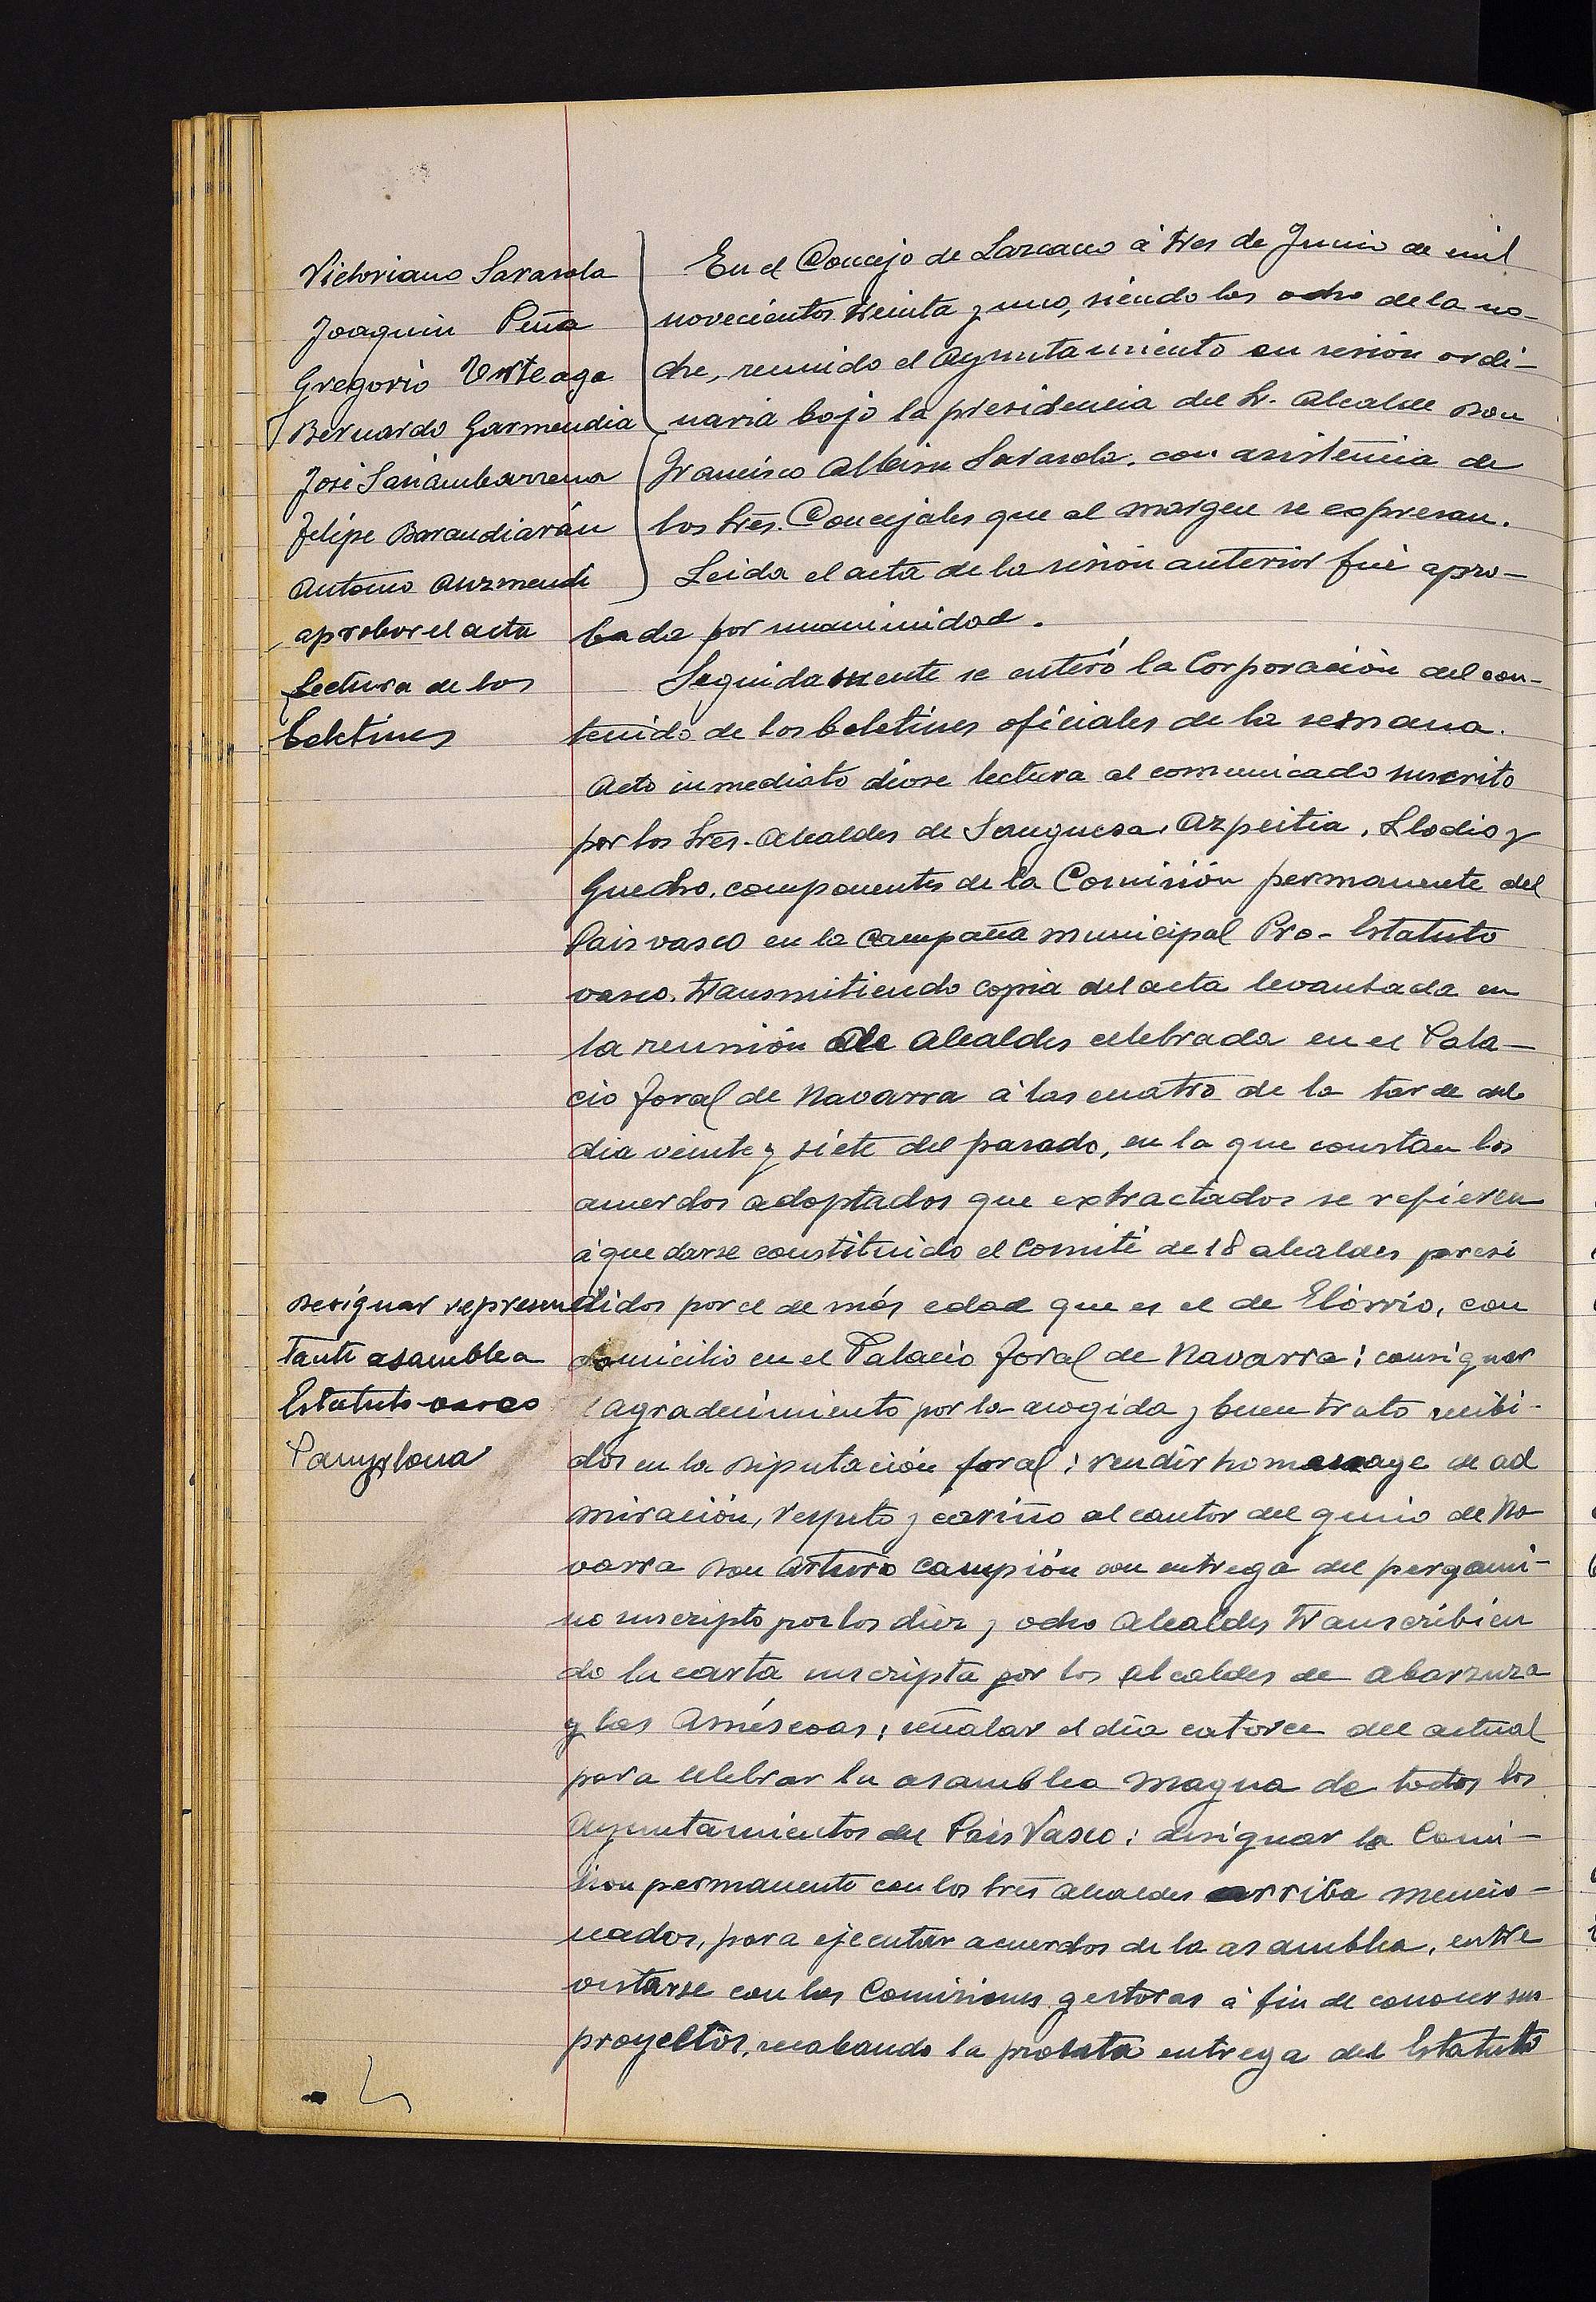 Victoriano Sarasola
Joaquin Peña
Gregorio Urteaga
Bernardo Garmendia
José Sanámbarrena
Felipe Barandiarán
Antonio Auzmendi
aprobar el acta
Lectura de los
Boletines
Designar represen
tante asamblea
Estatuto vasco
Pamplona
En el Concejo de Lazcano á tres de Junio de mil
novecientos treinta y uno, siendo las ocho de la no-
che, reunido el Ayuntamiento en sesión ordi-
naria bajo la presidencia del Sr. Alcalde Don
Francisco Albisu Sarasola, con asistencia de
los Sres. Concejales que al margen se expresan.
Leida el acta de la sesión anterior fué apro-
bada por unanimidad.
Seguidamente se enteró la Corporación del con-
tenido de los boletines oficiales de la semana.
Acto inmediato diose lectura al comunicado suscrito
por los Sres. Alcaldes de Sanguesa, Azpeitia, Llodio y
Guecho, componentes de la Comisión permanente del
Pais vasco en la campaña municipal Pro-Estatuto
vasco, transmitiendo copia del acta levantada en
la reunión de Alcaldes celebrada en el Pala-
cio foral de Navarra á las cuatro de la tarde del
dia veinte y siete del pasado, en la que constan los
acuerdos adoptados que extractados se refieren
á quedarse constituido el Comité de 18 alcaldes presi
didos por el de más edad que es el de Elórrio, con
domicilio en el Palacio foral de Navarra; consignar
agradecimiento por la acogida y buen trato recibi-
dos en la Diputación foral; rendir homenage de ad
miración, respeto y cariño al cantor del genio de Na
varra Don Arturo Campión con entrega del pergami-
no suscripto por los diez y ocho Alcaldes transcribien
do la carta suscripta por los alcaldes de Abarzuza
y las Améscoas; señalar el día catorce del actual
para celebrar la asamblea magna de todos los
Ayuntamientos del Pais Vasco; designar la Comi-
sion permanente con los Sres Alcaldes arriba mencio-
nados, para ejecutar acuerdos de la asamblea, entre
vistarse con las Comisiones gestoras á fin de conocer sus
proyectos, recabando la pronta entrega del Estatuto